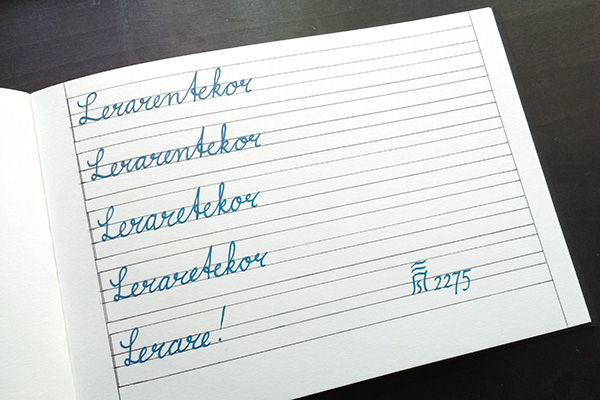 Lerarentekor
Lerarentekor
Leraretekor
Leraretekor
Lerare!
2275